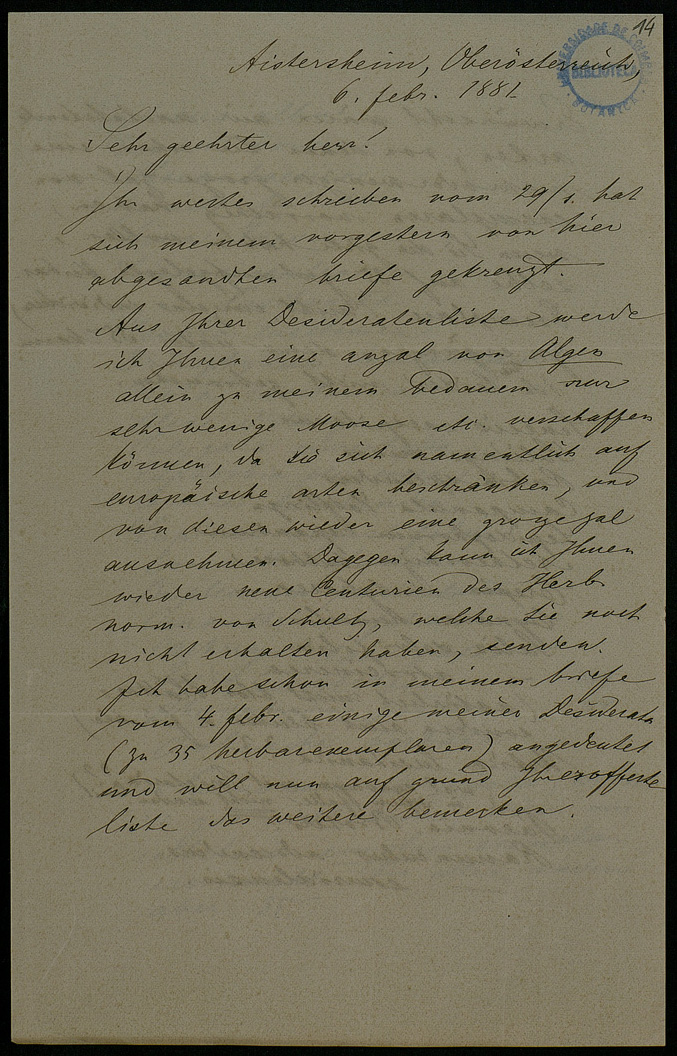 14
UNIVERSIDADE DE COIMBRA
BIBLIOTECA
BOTANICA
Aistersheim, Oberösterreich,
6. febr. 1881.
Sehr geehrter herr!
Ihr wertes schreiben vom 29/1. hat
sich meinem vorgestern von hier
abgesandten briefe gekreuzt.
Aus Ihrer Desideratenliste werde
ich Ihnen eine anzal von Algen
allein zu meinem bedauern nur
sehr wenige Moose etc. verschaffen
können, da Sie sich namentlich auf
europäische arten beschränken, und
von diesen wieder eine grosze zal
ausnehmen. Dagegen kann ich Ihnen
wieder neue Centurien des Herb.
norm. von Schultz, welche Sie noch
nicht erhalten haben, senden.
Ich habe schon in meinem briefe
vom 4. febr. einige meiner Desiderata
(zu 35 herbarexemplaren) angedeutet
und will nun auf grund Ihrer offerten
liste das weitere bemerken.